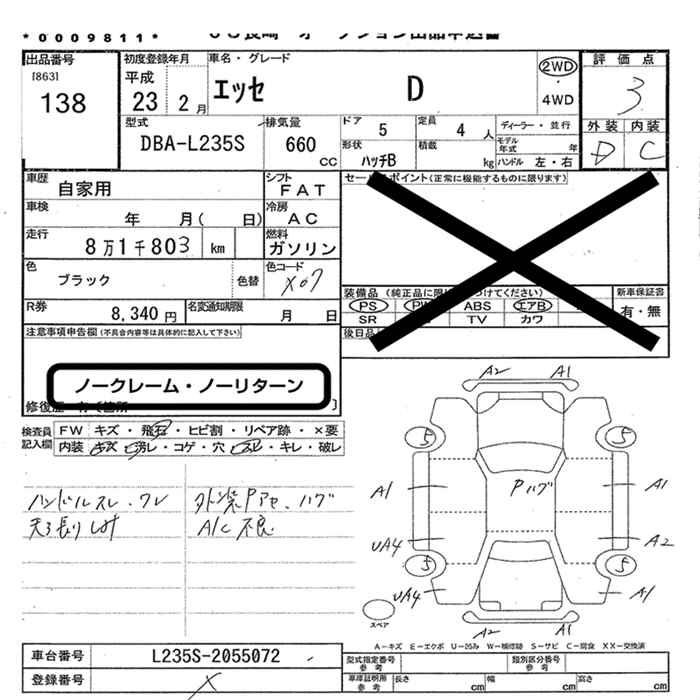 *0009811*
出品番号
[863]
138
初度登録年月
平成
23 2月
車名・グレード
エッセ D
2WD
・
4WD
評価点
3
外装 内装
D C
型式
DBA-L235S
排気量
660
CC
ドア
5
定員
4 人
形状
ハッチB
積載
kg
ディーラー・並行
モデル年式 年
ハンドル 左・右
車歴
自家用
シフト
FAT
車検
年 月( 日)
冷房
AC
走行
8万1千803 km
燃料
ガソリン
色
ブラック
色替
色コード
X07
R券
8,340円
名変通知期限
月 日
セールスポイント(正常に機能するものに限ります)
装備品
PS PW ABS エアB
SR TV カワ
新車保証書
有・無
注意事項申告欄(不具合内容等は具体的に記入して下さい)
ノークレーム・ノーリターン
検査員記入欄
FW キズ・飛石・ヒビ割・リペア跡・×要
内装 キズ・汚レ・コゲ・穴・スレ・キレ・破レ
ハンドルスレ・ワレ
天張りしみ
外装Pアセ・ハゲ
A/C不良
A2 A1
5 5
Pハゲ
A1 A1
UA4 A2
5 5
UA4 A1
スペア
A2 A1
A-キズ E-エクボ U-凹み W-補修跡 S-サビ C-腐食 XX-交換済
車台番号
L235S-2055072
登録番号
X
型式指定番号
参考
類別区分番号
参考
車庫証明用
参考
長さ cm
幅 cm
高さ cm